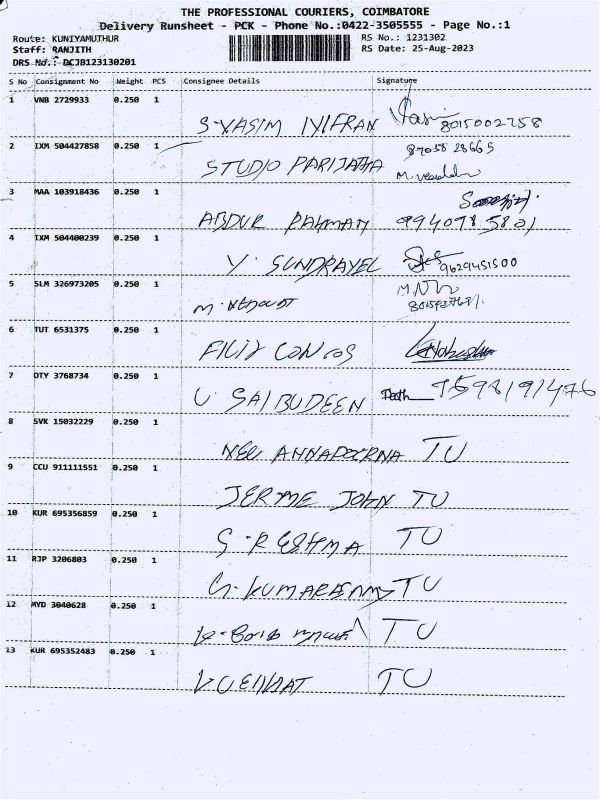 THE PROFESSIONAL COURIERS, COIMBATORE
Delivery Runsheet - PCK - Phone No.:0422-3505555 - Page No.:1
Route: KUNIYAMUTHUR RS No.: 1231302
Staff: RANJITH RS Date: 25-Aug-2023
DRS No.: DCJB123130201
S No Consignment No Weight PCS Consignee Details Signature
1 VNB 2729933 0.250 1
S-YASIM 8015002758
2 IXM 504427858 0.250 1
STUDIO PARIJATHA 89058 28665
3 MAA 103918436 0.250 1
ABDUR RAHMAN 9940985801
4 IXM 504400239 0.250 1
Y. SUNDRAYEL 9629451500
5 SLM 326973205 0.250 1
6 TUT 6531375 0.250 1
7 OTY 3768734 0.250 1
U SAIBUDEEN 9598191476
8 SVK 15032229 0.250 1
NEW ANNAPOORNA TU
9 CCU 911111551 0.250 1
JERME JOHN TU
10 KUR 695356859 0.250 1
S-RESHMA TU
11 RJP 3206803 0.250 1
G-KUMARASAMY TU
12 MYD 3040628 0.250 1
TU
13 KUR 695352483 0.250 1
TU